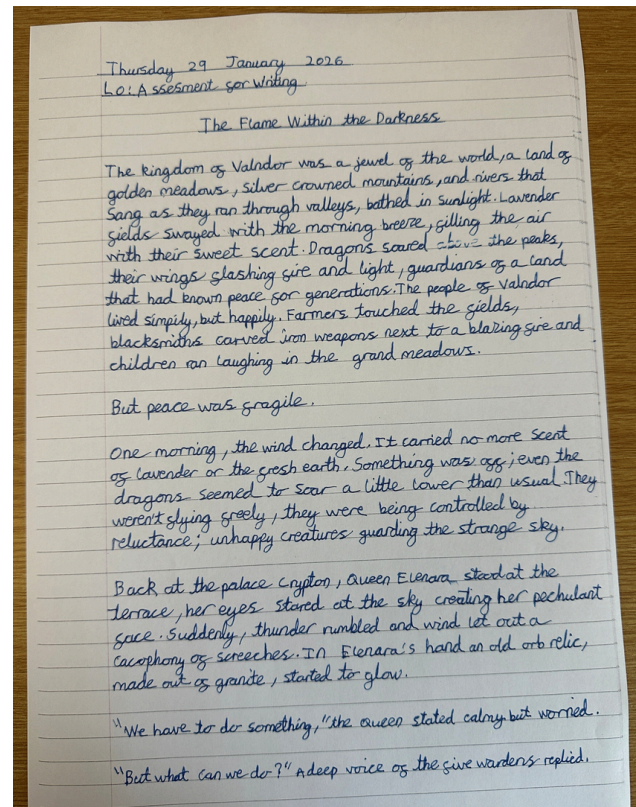 Thursday 29 January 2026
LO: Assesment for writing
The Flame Within the Darkness
The kingdom of Valndor was a jewel of the world, a land of
golden meadows, silver crowned mountains, and rivers that
sang as they ran through valleys, bathed in sunlight. Lavender
fields swayed with the morning breeze, filling the air
with their sweet scent. Dragons soared above the peaks,
their wings flashing fire and light, guardians of a land
that had known peace for generations. The people of Valndor
lived simpily, but happily. Farmers touched the fields,
blacksmiths carved iron weapons next to a blazing fire and
children ran laughing in the grand meadows.
But peace was fragile.
One morning, the wind changed. It carried no more scent
of lavender or the fresh earth. Something was off; even the
dragons seemed to soar a little lower than usual. They
weren't flying freely, they were being controlled by
reluctance; unhappy creatures guarding the strange sky.
Back at the palace crypton, Queen Elenara stood at the
terrace, her eyes stared at the sky creating her pechulant
face. Suddenly, thunder rumbled and wind let out a
cacophony of screeches. In Elenara's hand an old orb relic,
made out of granite, started to glow.
"We have to do something," the queen stated calmy but worried.
"But what can we do?" A deep voice of the five wardens replied.